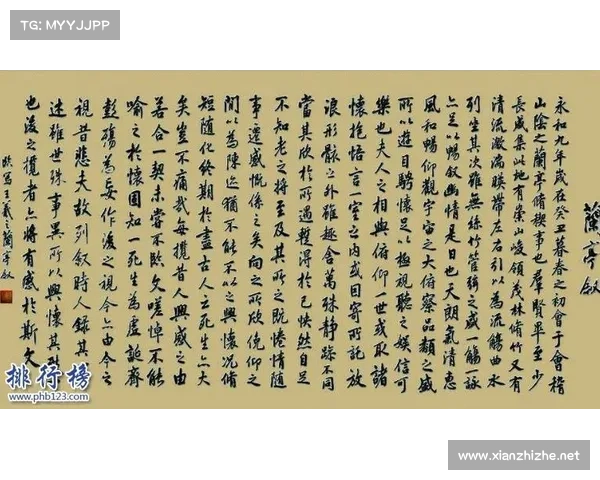 TG: MYYJJPP
蘭亭叙
永和九年歲在癸丑暮春之初會于會稽
山陰之蘭亭脩稧事也羣賢畢至少
長咸集此地有崇山峻領茂林脩竹又有
清流激湍暎帶左右引以為流觴曲水
列坐其次雖無絲竹管絃之盛一觴一詠
亦足以暢叙幽情是日也天朗氣清惠
風和暢仰觀宇宙之大俯察品類之盛
所以遊目騁懷足以極視聽之娛信可
樂也夫人之相與俯仰一世或取諸
懷抱悟言一室之內或因寄所託放
浪形骸之外雖趣舍萬殊靜躁不同
當其欣於所遇蹔得於己怏然自足
不知老之將至及其所之既惓情隨
事遷感慨係之矣向之所欣俛仰之
間以為陳迹猶不能不以之興懷況脩
短隨化終期於盡古人云死生亦大
矣豈不痛哉每攬昔人興感之由
若合一契未嘗不臨文嗟悼不能
喻之於懷固知一死生為虛誕齊
彭殤為妄作後之視今亦由今之
視昔悲夫故列叙時人錄其
述雖世殊事異所以興懷其致
也後之攬者亦將有感於斯文
臨寫王羲之蘭亭叙
排行榜
www.phb123.com
www.xianzhizhe.net